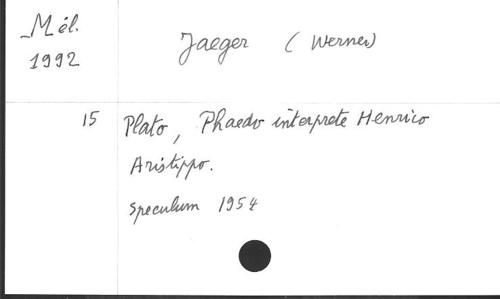 Mél.
1992
Jaeger (Werner)
15 Plato, Phaedo interprete Henrico
Aristippo.
Speculum 1954